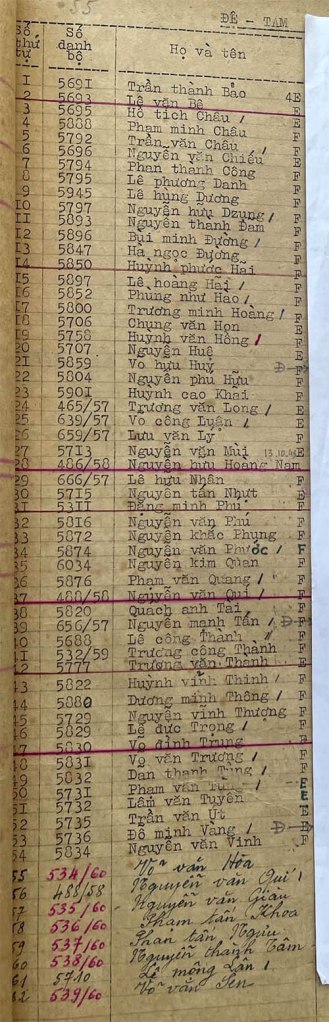 ĐÊ - TAM
Số thứ tự | Số danh bộ | Họ và tên
1 5691 Trần thành Bảo 4E
2 5693 Lê văn Bê E
3 5695 Hồ tích Châu / E
4 5888 Phạm minh Châu F
5 5792 Trần văn Châu / F
6 5696 Nguyễn văn Chiếu E
7 5794 Phan thanh Công F
8 5795 Lê phương Danh F
9 5945 Lê hùng Dương F
10 5797 Nguyễn hữu Dzung / F
11 5893 Nguyễn thanh Đam F
12 5896 Bùi minh Đường / F
13 5847 Hà ngọc Đường F
14 5850 Huỳnh phước Hải F
15 5897 Lê hoàng Hải / F
16 5852 Phùng như Hảo / F
17 5800 Trương minh Hoàng / F
18 5706 Chung văn Hon E
19 5758 Huỳnh văn Hồng / F
20 5707 Nguyễn Huệ E
21 5859 Võ hữu Huy F
22 5804 Nguyễn phú Hữu F
23 5901 Huỳnh cao Khải F
24 465/57 Trương văn Long / E
25 639/57 Võ công Luận / E
26 659/57 Lưu văn Lý F
27 5713 Nguyễn văn Mùi E
28 486/58 Nguyễn hữu Hoang Nam
29 666/57 Lê hữu Nhân F
30 5715 Nguyễn tấn Nhựt E
31 5311 Đặng minh Phú F
32 5816 Nguyễn văn Phú F
33 5872 Nguyễn khắc Phụng F
34 5874 Nguyễn văn Phước / F
35 6034 Nguyễn kim Quan F
36 5876 Phạm văn Quang / F
37 488/58 Nguyễn văn Quí / F
38 5820 Quách anh Tài F
39 656/57 Nguyễn mạnh Tấn / D F
40 5688 Lê công Thành " F
41 532/59 Trương công Thành F
42 5777 Trương văn Thanh E
43 5822 Huỳnh vĩnh Thinh / F
44 5880 Dương minh Thông / F
45 5729 Nguyễn vĩnh Thượng F
46 5829 Lê đức Trọng / F
47 5830 Võ đình Trung F
48 5831 Võ văn Trương / F
49 5832 Dan thanh Tùng / F
50 5731 Phạm văn Tùng / E
51 5732 Lâm văn Tuyên E
52 5735 Trần văn Út E
53 5736 Đỗ minh Vàng / D E
54 5834 Nguyễn văn Vinh F
55 534/60 Võ văn Hòa
56 488/58 Nguyễn văn Quí /
57 535/60 Nguyễn văn Giàu
58 536/60 Phạm tấn Khoa
59 537/60 Phan tấn Ngưu
60 538/60 Nguyễn thành Tâm
61 5710 Lê mộng Lân /
62 539/60 Võ văn Sen